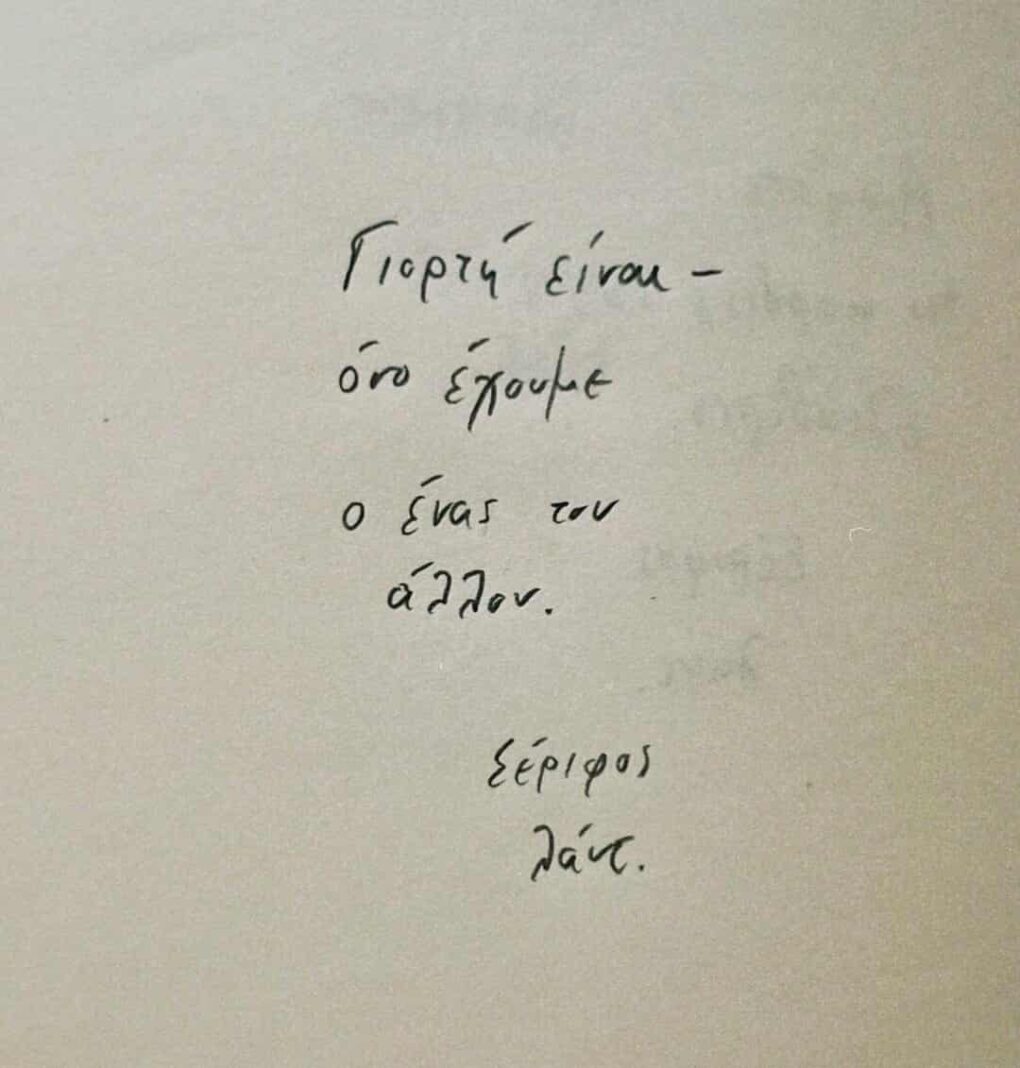 Γιορτή είναι –
όσο έχουμε
ο ένας τον
άλλον.
Σέριφος
λάντ.